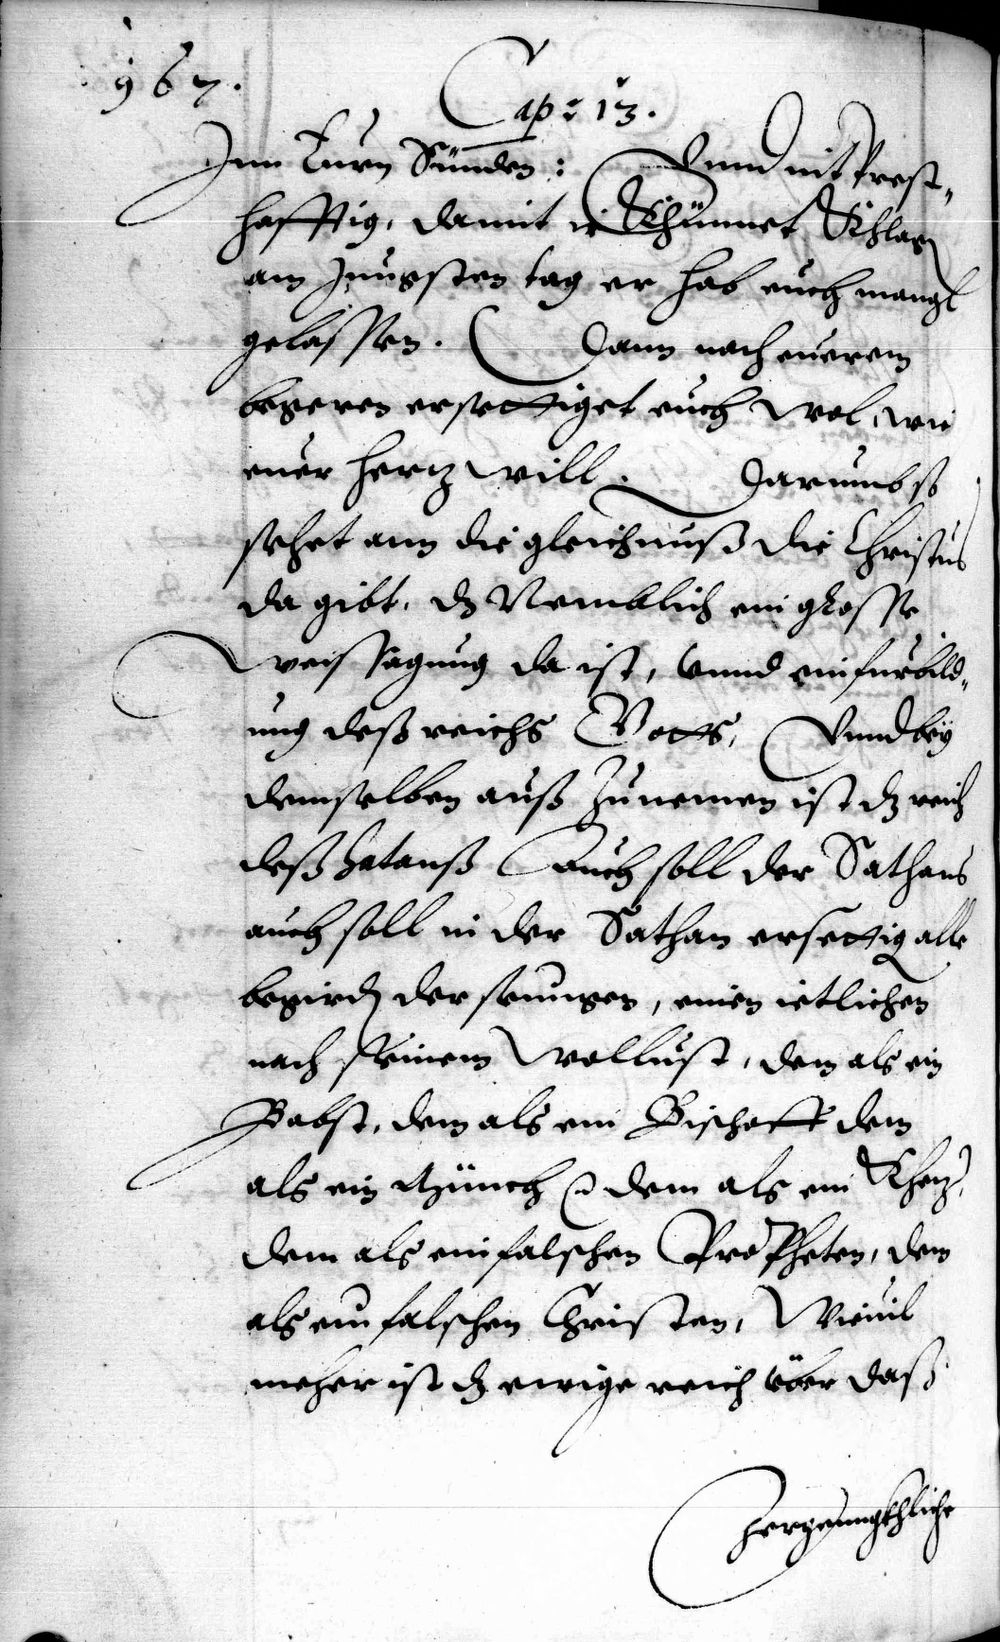 967.
Cap: 13.
Inn Eurn Sünden: Vnnd nit Prest„
hafftig, damit ir Khünnet Khlag
am Jungsten tag er hab euch mangl
gelassen. Dann nach euerem
begeren ersettiget euch wol, wie
euer hertz will. Darumb so
sehet ann die gleichnuß die Christus
da gibt, dz Nemblich ein grosse
weissagung da ist, vnnd ein furbild„
ung deß reichs Gotts, Vnnd bey
demselben auß zunemen ist dz reich
deß Satanß Auch soll der Sathans
auch soll in der Sathan ersettig alle
begird der seinigen, einen ietlichen
nach seinem wollust, dem als ein
Pabst, dem als ein Bischoff dem
als ein Münch dem als ein
dem als ein falschen Propheten, dem
als ein falschen Christen, Wieuil
meher ist dz ewige reich vber daß
zergenngkhliche